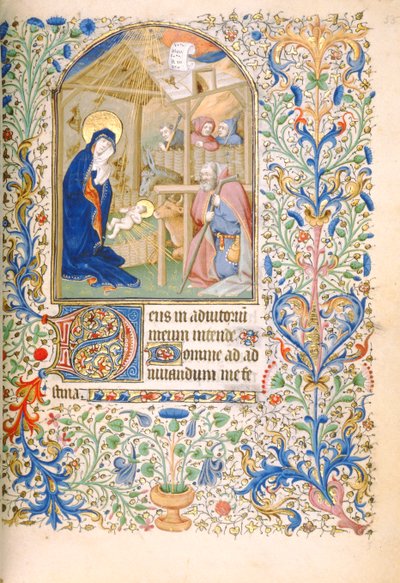 Deus in adiutoriū
meum intende
Domine ad ad
iuuandum me fe
stina.